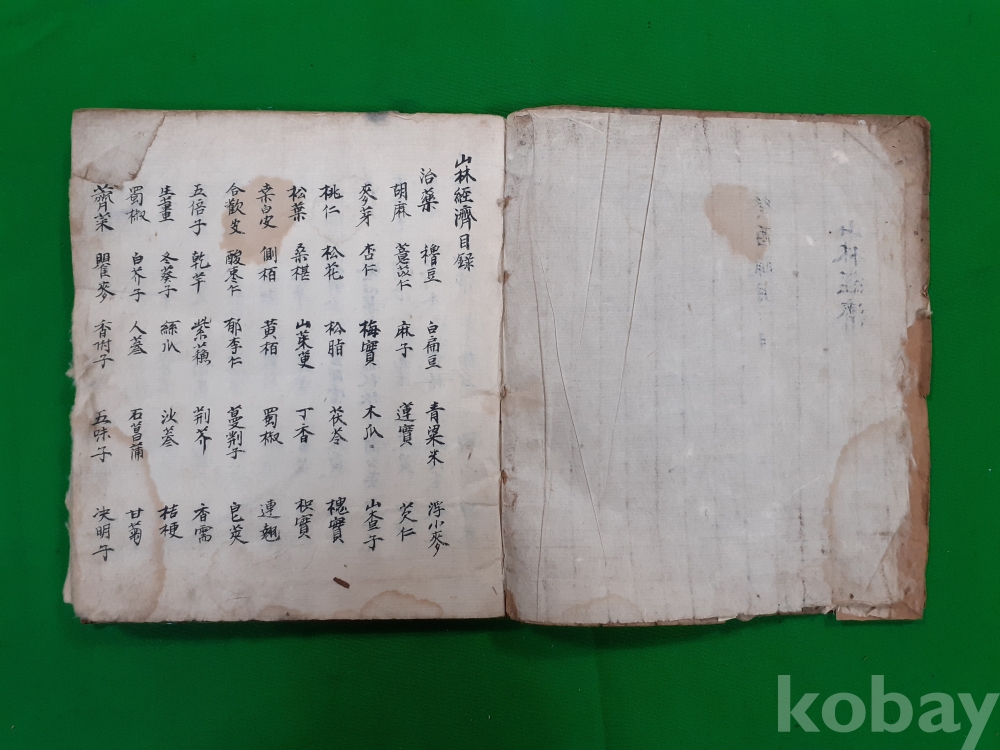 山林經濟目録
治藥 穭豆 白扁豆 青粱米 浮小麥
胡麻 薏苡仁 麻子 蓮實 芡仁
麥芽 杏仁 梅實 木瓜 山査子
桃仁 松花 松脂 茯苓 槐實
松葉 桑椹 山茱萸 丁香 枳實
桒白皮 側栢 黃栢 蜀椒 連翹
合歡皮 酸枣仁 郁李仁 蔓荊子 皂莢
五倍子 乾芊 紫蘓 荊芥 香薷
生薑 冬葵子 絲瓜 沙蔘 桔梗
蜀椒 白芥子 人蔘 石菖蒲 甘菊
薺菜 瞿麥 香附子 五味子 决明子
kobay